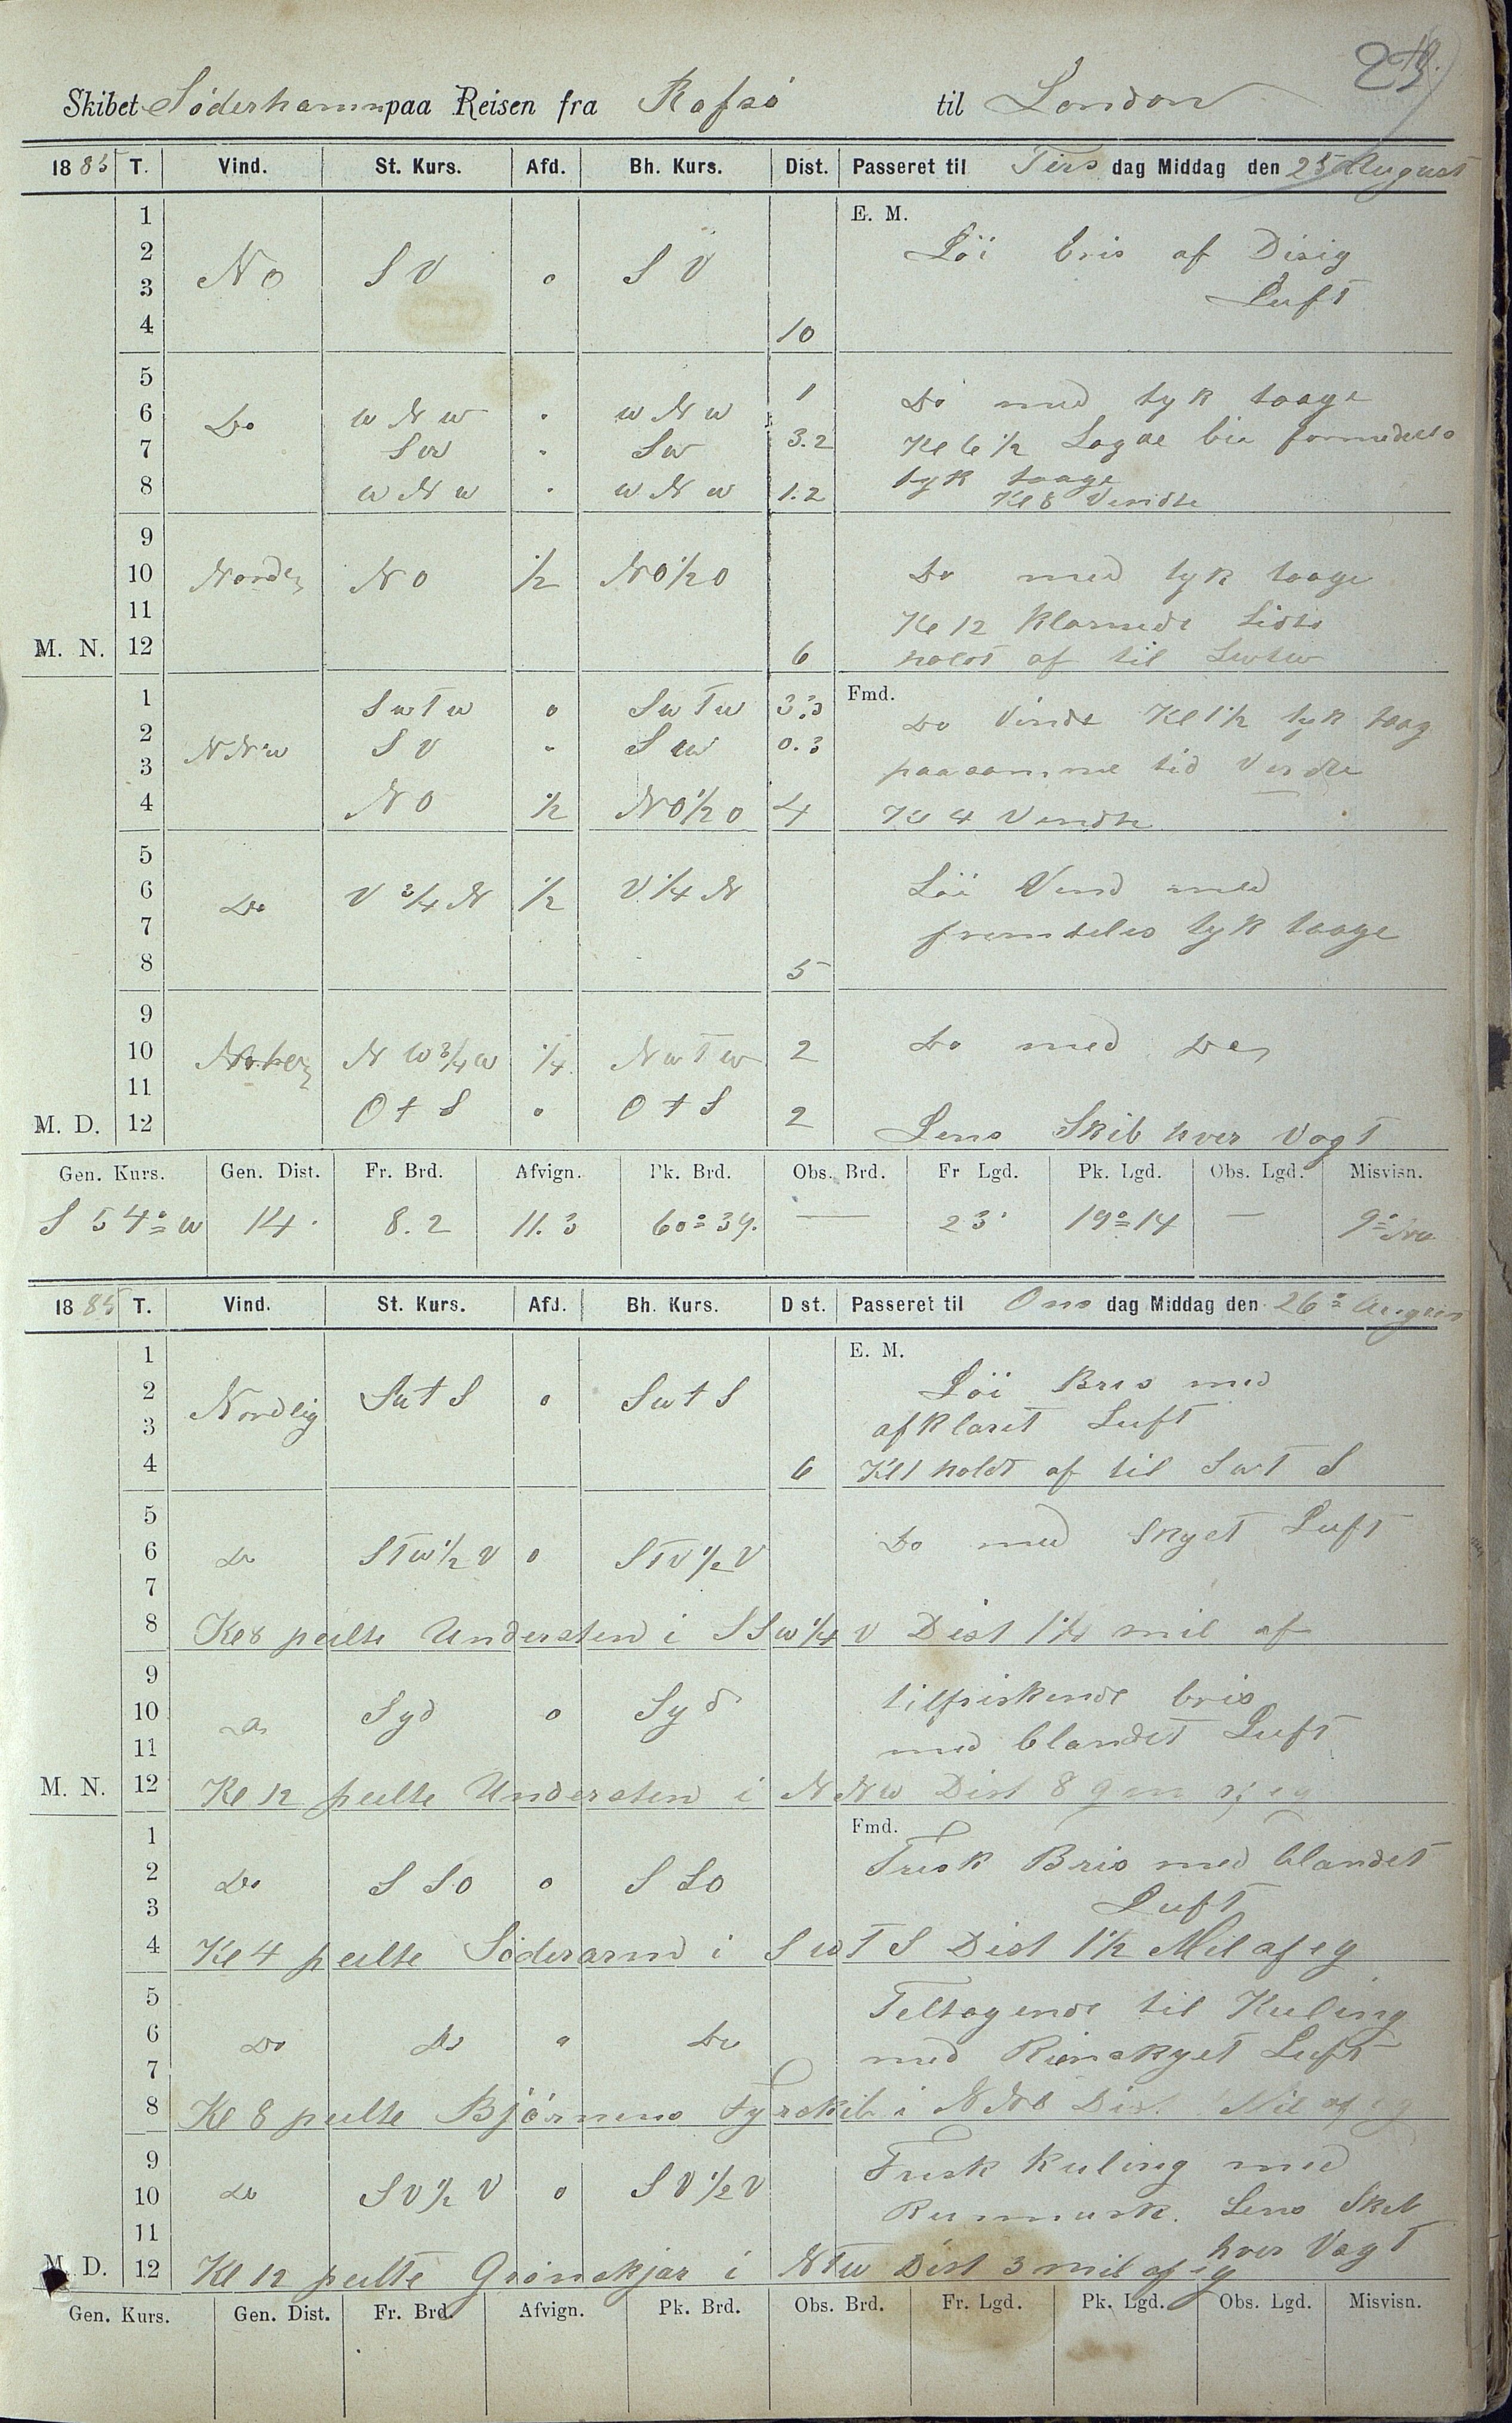 Skibet Söderhamn paa Reisen fra Rafsö til London
1885 T. Vind. St. Kurs. Afd. Bh. Kurs. Dist. Passeret til Tirs dag Middag den 25 August
1 E. M.
2 Löi bris af Disig
3 No SV o SV Luft
4 10
5 1 Do med tyk taage
6 Do w N w " w N w
7 Sw " Sw 3.2 Kl 6 1/2 Lagde bie formedelst
8 w N w " w N w 1.2 tyk taage
Kl 8 Vendte
9
10 Norden NO 1/2 NO 1/2 O Do med tyk taage
11 Kl 12 Klarnede
M. N. 12 6 holdt af til SwTw
1 SwTw o SwTw 3.3 Fmd. Do Vinde Kl 1 1/2 tyk taag
2 NNw SV " Sw 0.3
3 paasamme tid Vendte
4 NO 1/2 NO 1/2 O 4 Kl 4 Vendte
5
6 Do V 3/4 N 1/2 V 1/4 N Löi Vind med
7 fremdeles tyk taage
8 5
9
10 N W 3/4 w 1/4 NwTw 2 Do med Do
11
M. D. 12 O t S o O t S 2 Lens Skib hver Vagt
Gen. Kurs. Gen. Dist. Fr. Brd. Afvign. Pk. Brd. Obs. Brd. Fr Lgd. Pk. Lgd. Obs. Lgd. Misvisn.
S 54° w 14. 8.2 11.3 60° 39. — 23' 19° 14 — 9° Nw
1885 T. Vind. St. Kurs. Afd. Bh. Kurs. Dist. Passeret til Ons dag Middag den 26 August
1 E. M.
2 Nordlig Swt S o Swt S Löi Bris med
3 afklaret Luft
4 6 Kl 1 holdt af til SwT S
5
6 Do STw 1/2 V o STV 1/2 V Do med Skyet Luft
7
8 Kl 8 peilte Understen i SSw 1/4 V Dist 1 1/4 mil af
9 tilfriskende bris
10 Do Syd o Syd
11 med blandet Luft
M. N. 12 Kl 12 peilte Understen i NNw Dist 8
1 Fmd.
2 Do S SO o S SO Frisk Bris med blandet
3 Luft
4 Kl 4 peilte Söderarm i SwT S Dist 1 1/2 Mil af sig
5 Teltagende til Kuling
6 Do Do " Do
7 med Rienskyet Luft
8 Kl 8 peilte Björnens Fyrskib i NNO Dist. Mil af sig
9 Frisk Kuling med
10 Do SV 1/2 V o SV 1/2 V
11 Lens Skib
hver Vagt
M. D. 12 Kl 12 peilte Grönskjær i NTw Dist 3 mil af sig
Gen. Kurs. Gen. Dist. Fr. Brd. Afvign. Pk. Brd. Obs. Brd. Fr. Lgd. Pk. Lgd. Obs. Lgd. Misvisn.